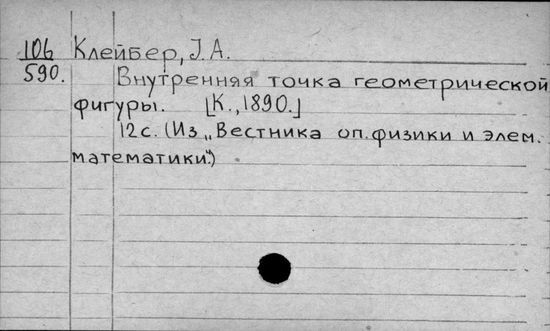 106 Клейбер, J. А.
590. Внутренняя точка геометрической
фигуры. [К., 1890.]
12 с. (Из „Вестника оп. физики и элем.
математики“.)